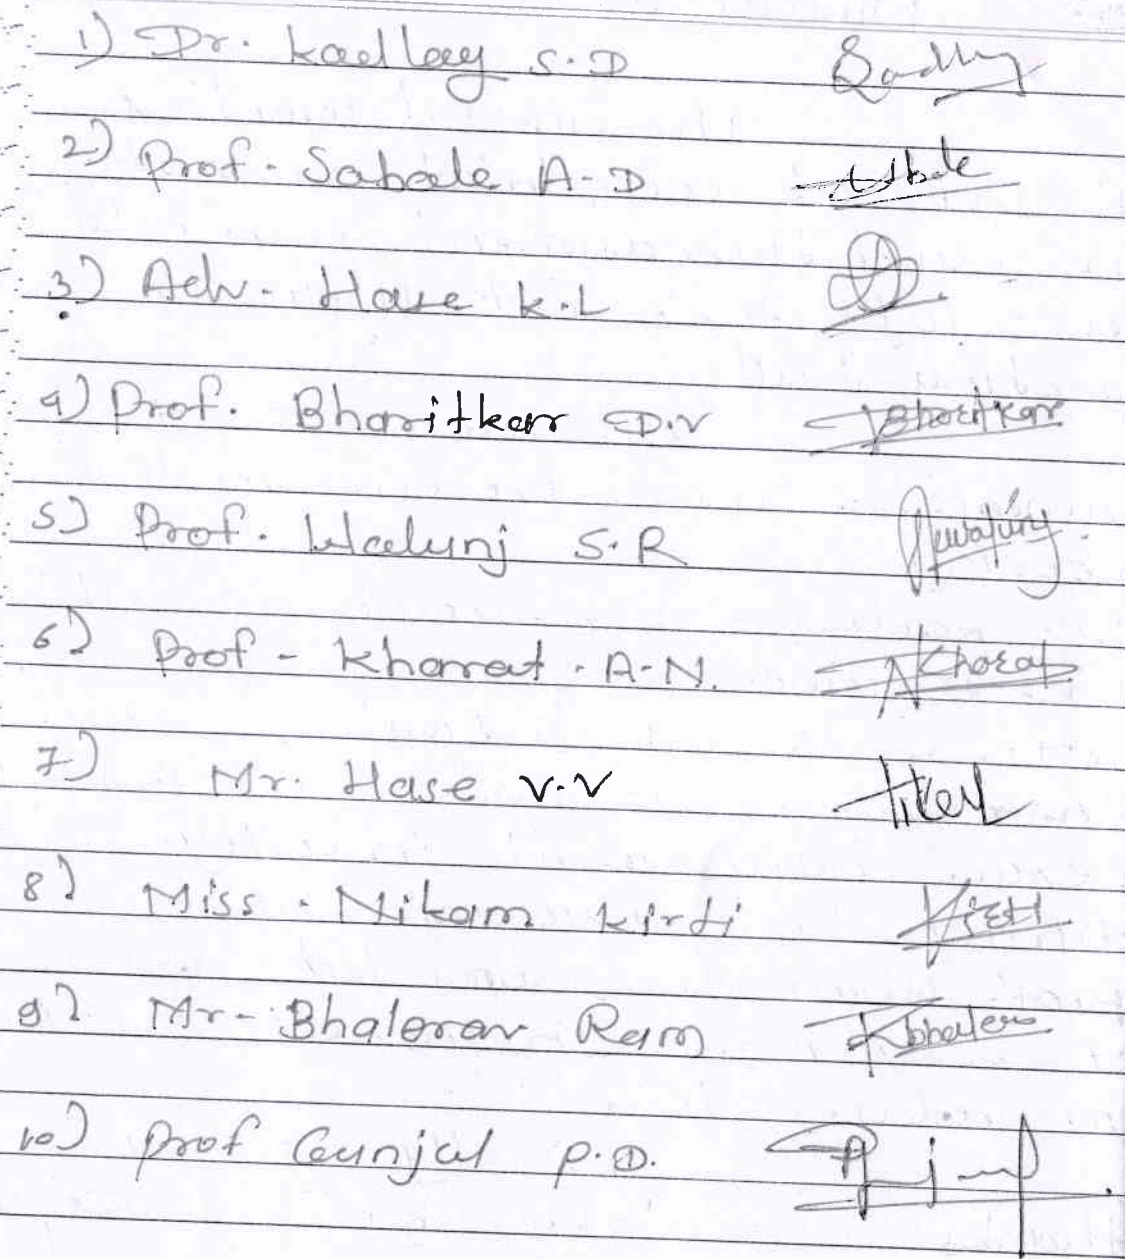 1) Dr. Kadlag S.D
2) Prof. Sabale A.D
3) Adv. Hase K.L
4) Prof. Bharitkar D.V Bharitkar
5) Prof. Walunj S.R
6) Prof - Kharat . A.N. Kharat
7) Mr. Hase V.V
8) Miss . Nikam Kirti Kirti
9) Mr - Bhalerav Ram
10) Prof Gunjal P.D.